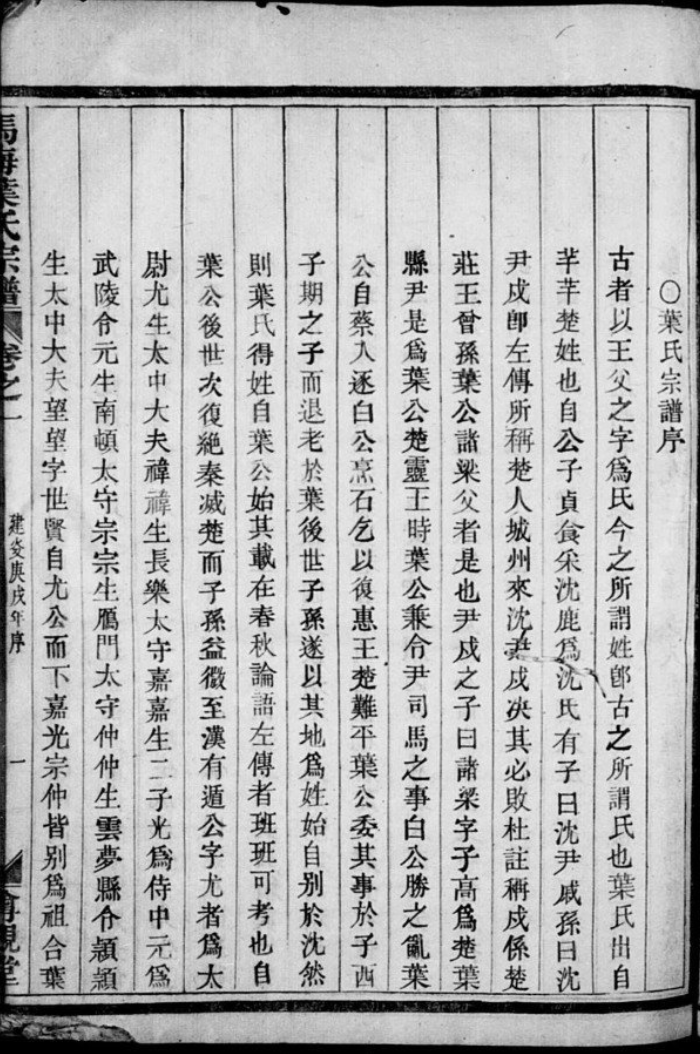 〇葉氏宗譜序
古者以王父之字爲氏今之所謂姓卽古之所謂氏也葉氏出自
芊芊楚姓也自公子貞食采沈鹿爲沈氏有子曰沈尹戚孫曰沈
尹戍卽左傳所稱楚人城州來沈尹戍决其必敗杜註稱戍係楚
莊王曾孫葉公諸梁父者是也尹戍之子曰諸梁字子高爲楚葉
縣尹是爲葉公楚靈王時葉公兼令尹司馬之事白公勝之亂葉
公自蔡入逐白公烹石乞以復惠王楚難平葉公委其事於子西
子期之子而退老於葉後世子孫遂以其地爲姓始自别於沈然
則葉氏得姓自葉公始其載在春秋論語左傳者班班可考也自
葉公後世次復絶秦滅楚而子孫益微至漢有遁公字尤者爲太
尉尤生太中大夫禕禕生長樂太守嘉嘉生二子光爲侍中元爲
武陵令元生南頓太守宗宗生鴈門太守仲仲生雲夢縣令顈顈
生太中大夫望望字世賢自尤公而下嘉光宗仲皆别爲祖合葉
馬海葉氏宗譜
卷之一
建炎庚戌年序
一
會親堂